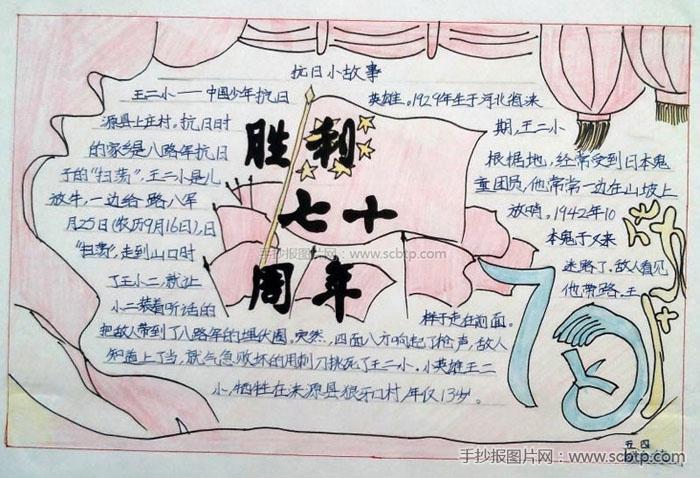 抗日小故事
王二小——中国少年抗日 英雄。1929年生于河北省涞
源县上庄村。抗日时 期,王二小
的家乡是八路军抗日 根据地,经常受到日本鬼
子的"扫荡",王二小是儿 童团员,他常常一边在山坡上
放牛,一边给路八军 放哨。1942年10
月25日(农历9月16日),日 本鬼子又来
"扫荡",走到山口时 迷路了。敌人看见
了王二小,就让 他带路。王
小二装着听话的 样子走在前面。
把敌人带到了八路军的埋伏圈。突然,四面八方响起了枪声,敌人
知道上了当,就气急败坏的用刺刀挑死了王二小。小英雄王二
小,牺牲在涞源县狼牙口村,年仅13岁。
胜利
七十
周年
70
手抄报图片网:www.scbtp.com
五四
手抄报图片网:www.scbtp.com